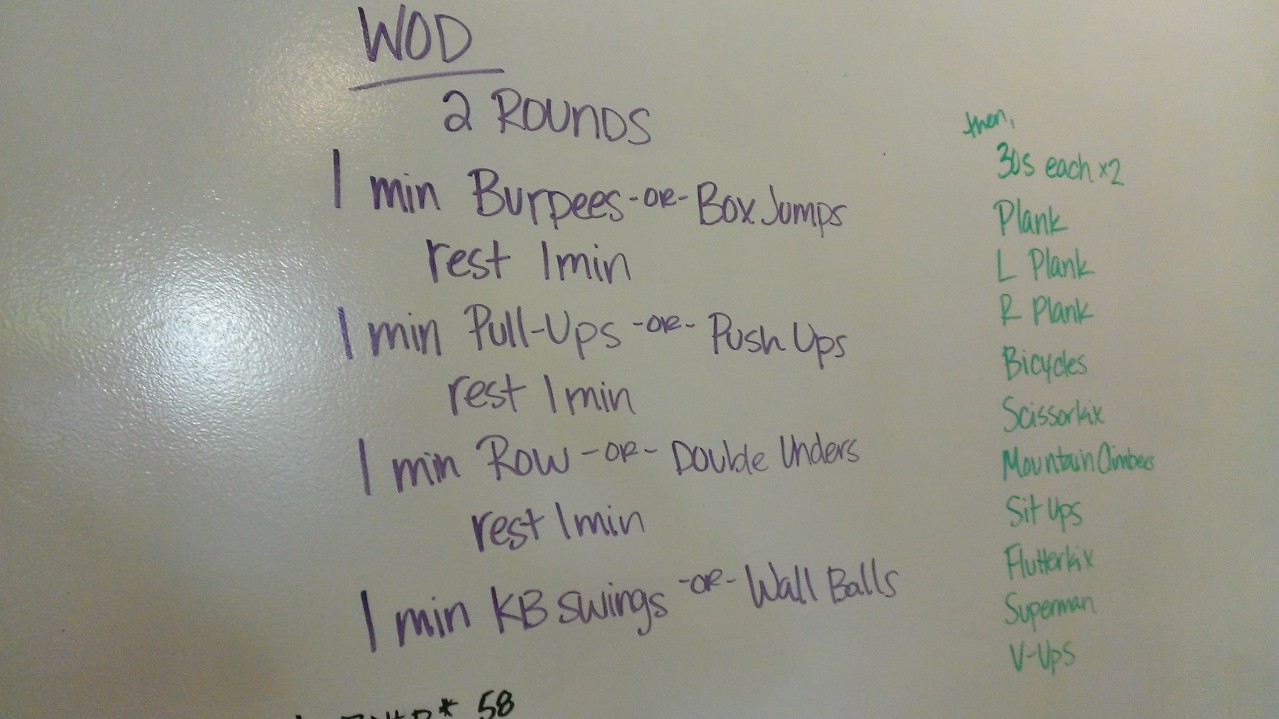 WOD
2 ROUNDS
1 min Burpees -OR- Box Jumps
rest 1min
1 min Pull-Ups -OR- Push Ups
rest 1min
1 min Row -OR- Double Unders
rest 1min
1 min KB swings -OR- Wall Balls
* 58
then,
30s each x2
Plank
L Plank
R Plank
Bicycles
Scissorkix
Mountain Climbers
Sit Ups
Flutterkix
Superman
V-Ups